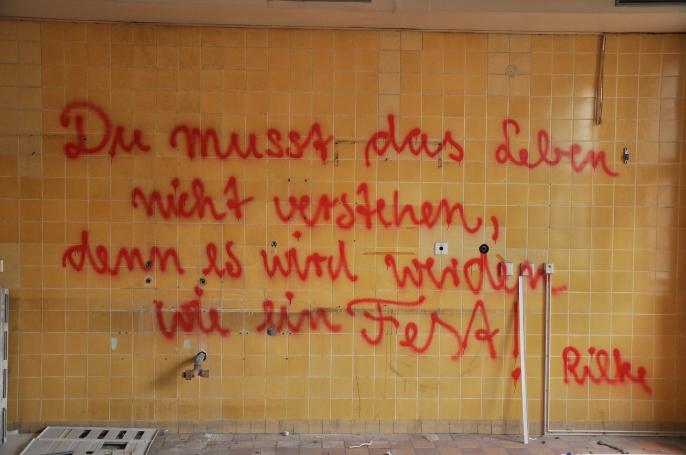 Du musst das Leben
nicht verstehen,
denn es wird werden
wie ein Fest!
Rilke